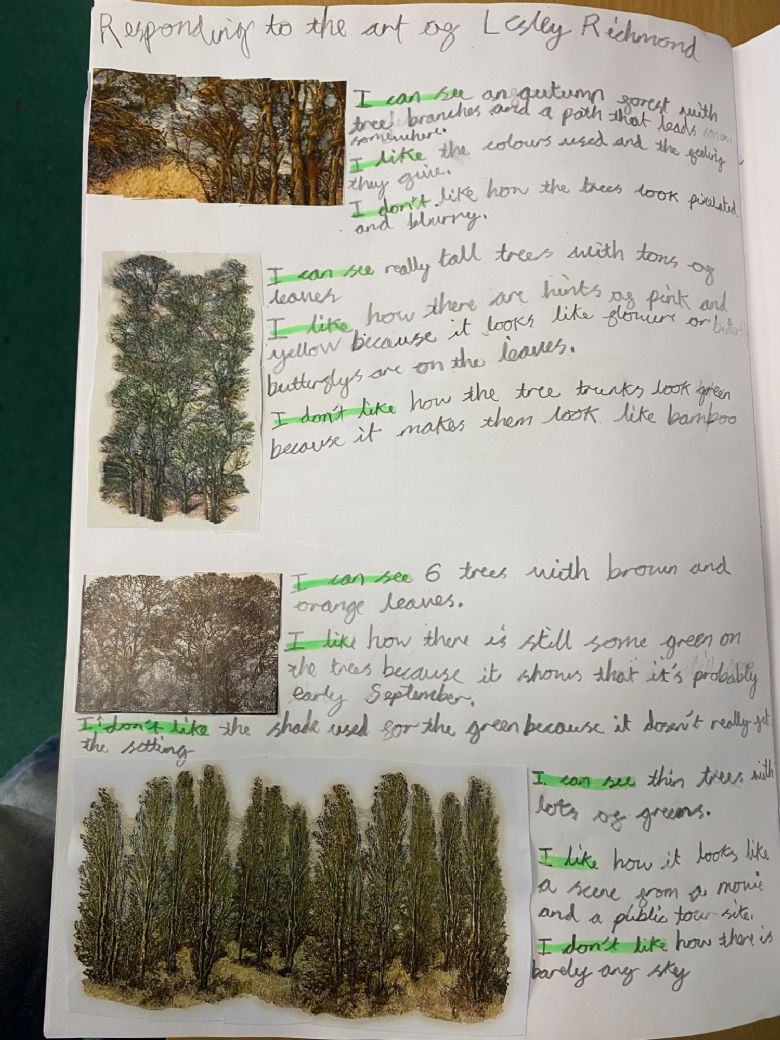 Responding to the art of Lesley Richmond
I can see an autumn forest with
tree branches and a path that leads
somewhere.
I like the colours used and the feeling
they give.
I don't like how the trees look pixelated
and blurry.
I can see really tall trees with tons of
leaves
I like how there are hints of pink and
yellow because it looks like flowers or
butterflys are on the leaves.
I don't like how the tree trunks look green
because it makes them look like bamboo
I can see 6 trees with brown and
orange leaves.
I like how there is still some green on
the trees because it shows that it's probably
early September.
I don't like the shade used for the green because it dosen't really fit
the setting
I can see thin trees with
lots of greens.
I like how it looks like
a scene from a movie
and a public tour site.
I don't like how there is
barely any sky